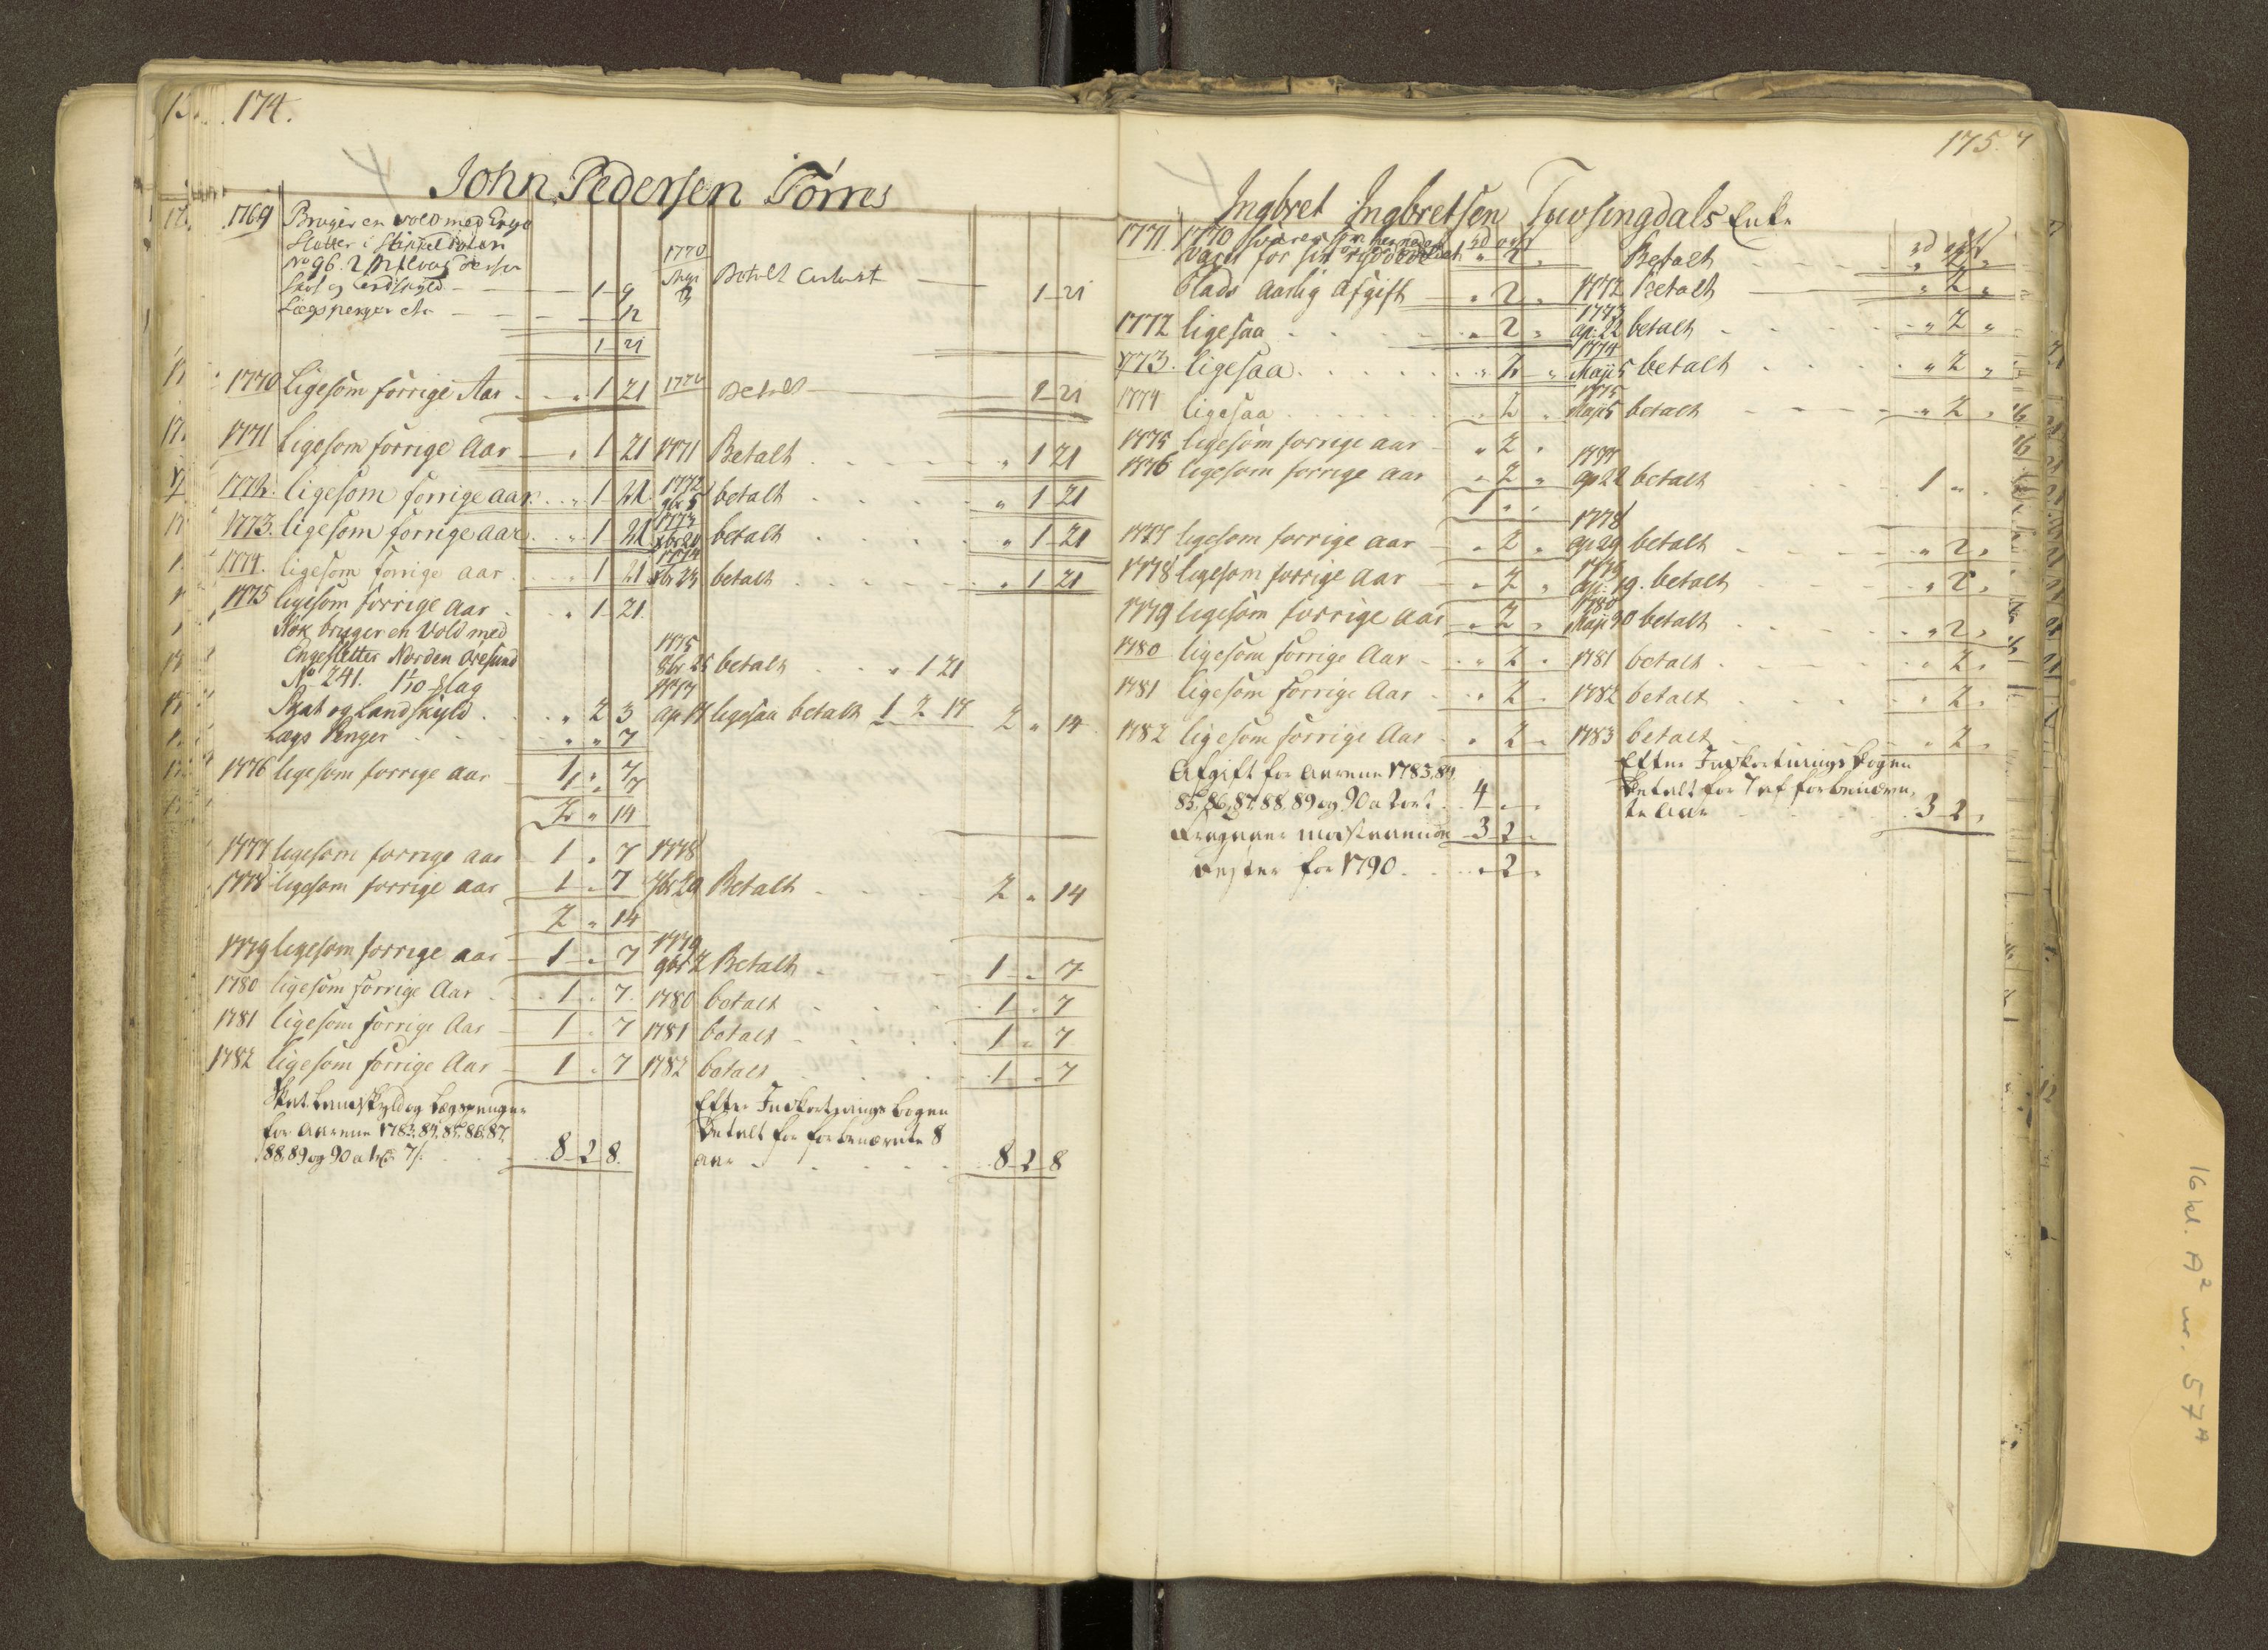 174.
John Pedersen Torres
1769 Bruger en vold med Enge
Sletter i
No 96. 2
Skat og Landskyld - - 1 - 9
Lægspenger - - - - 12
1 - 21
1770
Betalt - 1 - 21
1770 Ligesom forrige Aar - " 1 21 1770 Betalt - 1 - 21
1771 Ligesom forrige Aar - " 1 21 1771 Betalt " 1 21
1772. ligesom forrige aar. " 1 21 1772 9br 5 betalt " 1 21
1773. ligesom forrige aar. " 1 21 1773 betalt " 1 21
1774. ligesom forrige aar. " 1 21 1774 betalt " 1 21
1775 ligesom forrige Aar. " 1 21.
Nok bruger en Vold med
Engesletter Norden
No 241. 1 1/10 Slag
1775 25 betalt " 1 21
Skat og Landskyld. " 2 3
1777 ap 17 ligesaa betalt 1 2 17 2 " 14
Lægs Penger " " 7
1776 ligesom forrige aar 1 " 7
1 " 7
2 " 14
1777 ligesom forrige aar 1 " 7 1778
1778 ligesom forrige aar 1 " 7 Betalt 2 " 14
2 " 14
1779 ligesom forrige aar - 1 " 7 1779 9br 2 Betalt 1 " 7
1780 ligesom forrige Aar 1 " 7. 1780 betalt 1 " 7
1781 ligesom forrige Aar - 1 " 7 1781 betalt 1 " 7
1782 ligesom forrige Aar - 1 " 7 1782 betalt 1 " 7
Skat Landskyld og Lægspenger
for Aarene 1783, 84, 85, 86, 87,
88, 89 og 90 a 7 s. 8 2 8.
Efter Indkortnings bogen
betalt for forbenævnte 8
Aar 8 2 8
175.
Ingbret Ingbretsen Enke
1771 1770
for sin " 2 " Betalt " 2 "
Plads aarlig afgift - " 2 " 1772 Betalt " 2 "
1772 ligesaa " 2 " 1773 ap: 22 betalt " 2 "
1773. ligesaa " 2 " 1774 Maji 5 betalt " 2 "
1774 ligesaa " 2 " 1775 Maji 5 betalt " 2 "
1775 ligesom forrige aar " 2 "
1776 ligesom forrige aar " 2 " 1777 ap 22 betalt 1 " "
1 " "
1777 ligesom forrige aar - " 2 " 1778 ap 29 betalt " 2 "
1778 ligesom forrige aar - " 2 " 1779 19. betalt " 2 "
1779 ligesom forrige aar " 2 " 1780 Maji 30 betalt " 2 "
1780 ligesom forrige Aar - " 2 " 1781 betalt " 2 "
1781 ligesom forrige Aar - " 2 " 1782 betalt " 2 "
1782 ligesom forrige Aar - " 2 " 1783 betalt " 2 "
Afgift for Aarene 1783, 84,
85, 86, 87, 88, 89 og 90 a 2 ort 4 " "
3 2 "
Rester for 1790. " 2 "
Efter Indkortnings bogen
betalt for 7 af forbenævn-
te Aar 3 2 "
16 kl. A2 nr. 57A